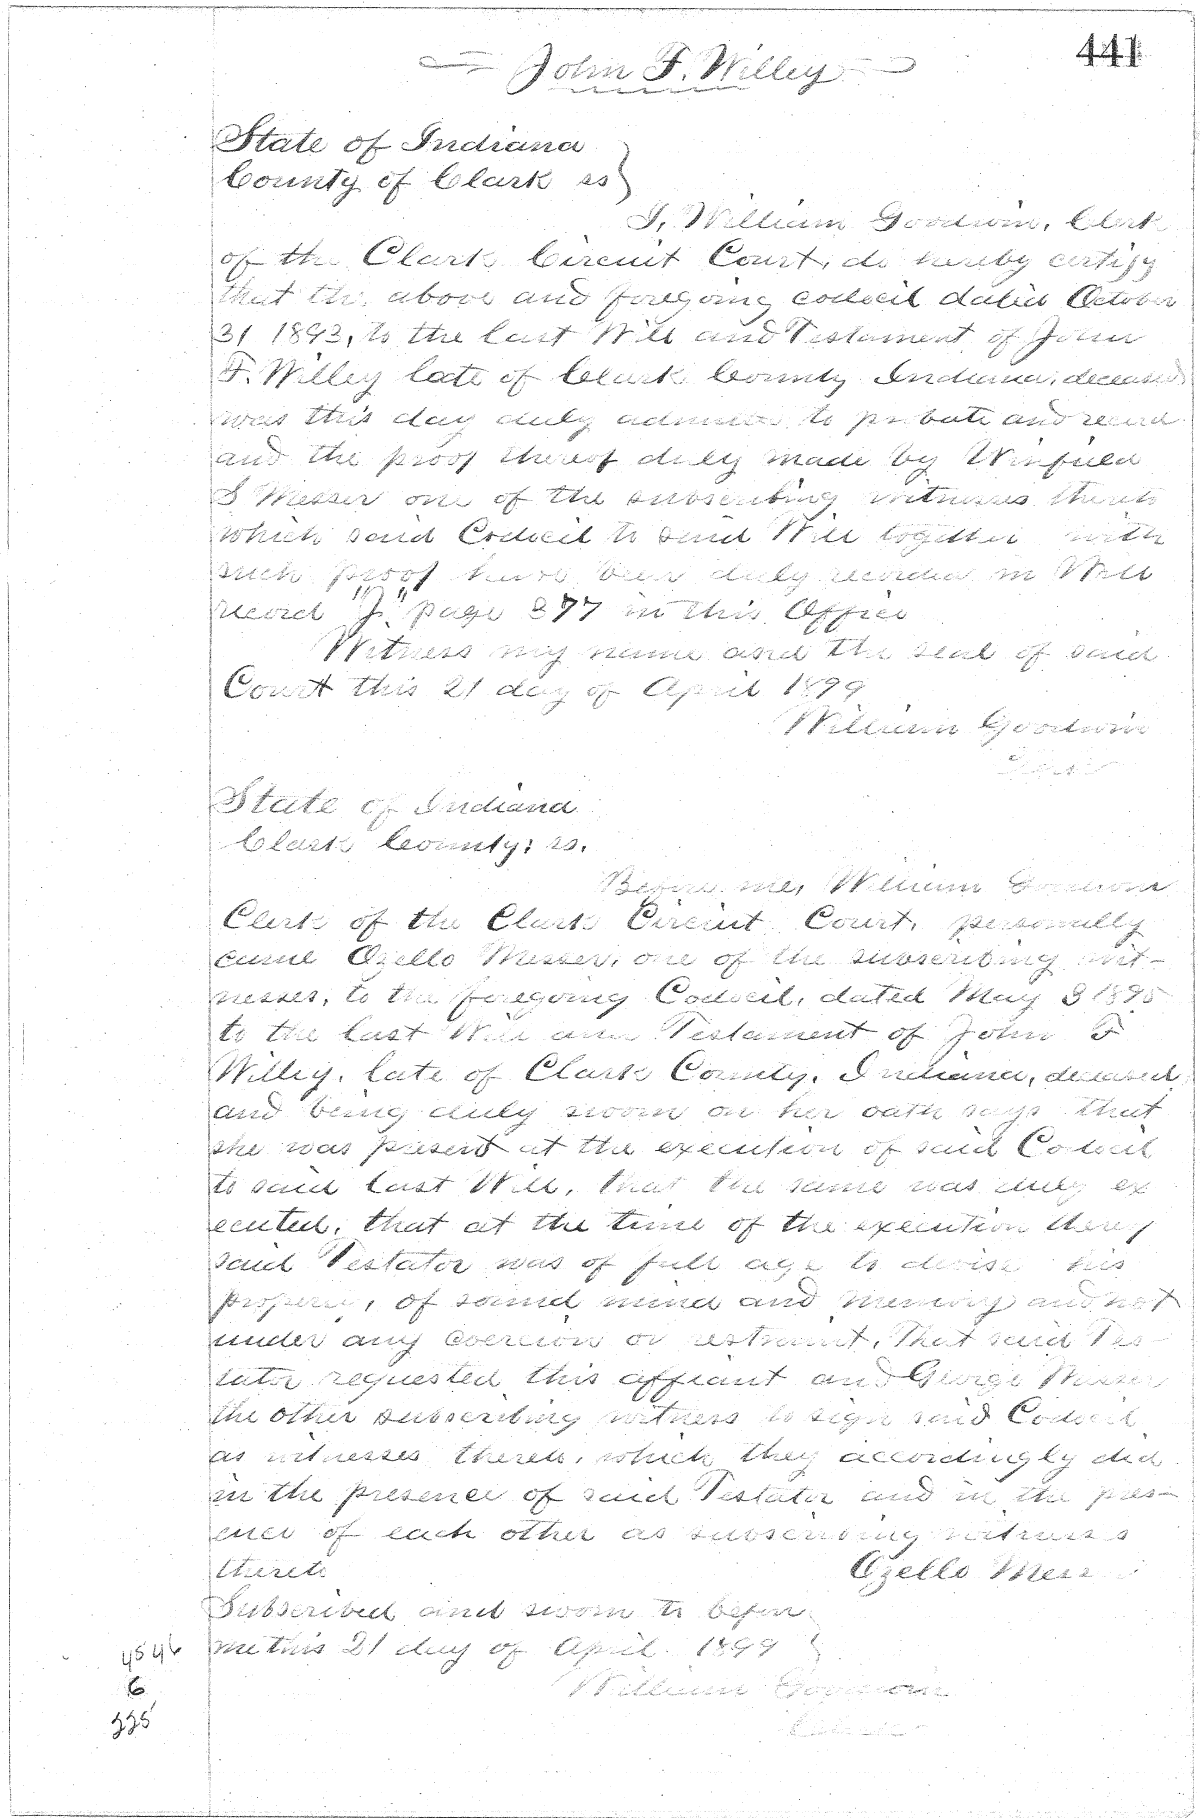 441
John F. Willey
State of Indiana
County of Clark ss
I, William Goodwin, Clerk
of the Clark Circuit Court, do hereby certify
that the above and foregoing codocil dated October
31 1893, to the last Will and Testament of John
F. Willey late of Clark County Indiana, deceased
was this day duly admitted to probate and record
and the proof thereof duly made by Winfield
S Messer one of the subscribing witnesses thereto
which said Codocil to said Will together with
such proof have been duly recorded in Will
record "J." page 377 in this Office
Witness my name and the seal of said
Court this 21 day of April 1899
William Goodwin
State of Indiana
Clark County; ss.
Before me, William Goodwin
Clerk of the Clark Circuit Court, personally
came Ozello Messer, one of the subscribing wit-
nesses, to the foregoing Codocil, dated May 3 1895
to the last Will and Testament of John F
Willey, late of Clark County, Indiana, deceased
and being duly sworn on her oath says that
she was present at the execution of said Codocil
to said last Will, that the same was duly ex
ecuted, that at the time of the execution thereof
said Testator was of full age to devise his
property, of sound mind and memory and not
under any coercion or restraint, That said Tes
tator requested this affiant and George Messer
the other subscribing witness to sign said Codocil
as witnesses thereto, which they accordingly did
in the presence of said Testator and in the pres-
ence of each other as subscribing witness s
thereto
Ozello Messer
Subscribed and sworn to before
me this 21 day of April 1899
William Goodwin
Clerk
4546
6
225